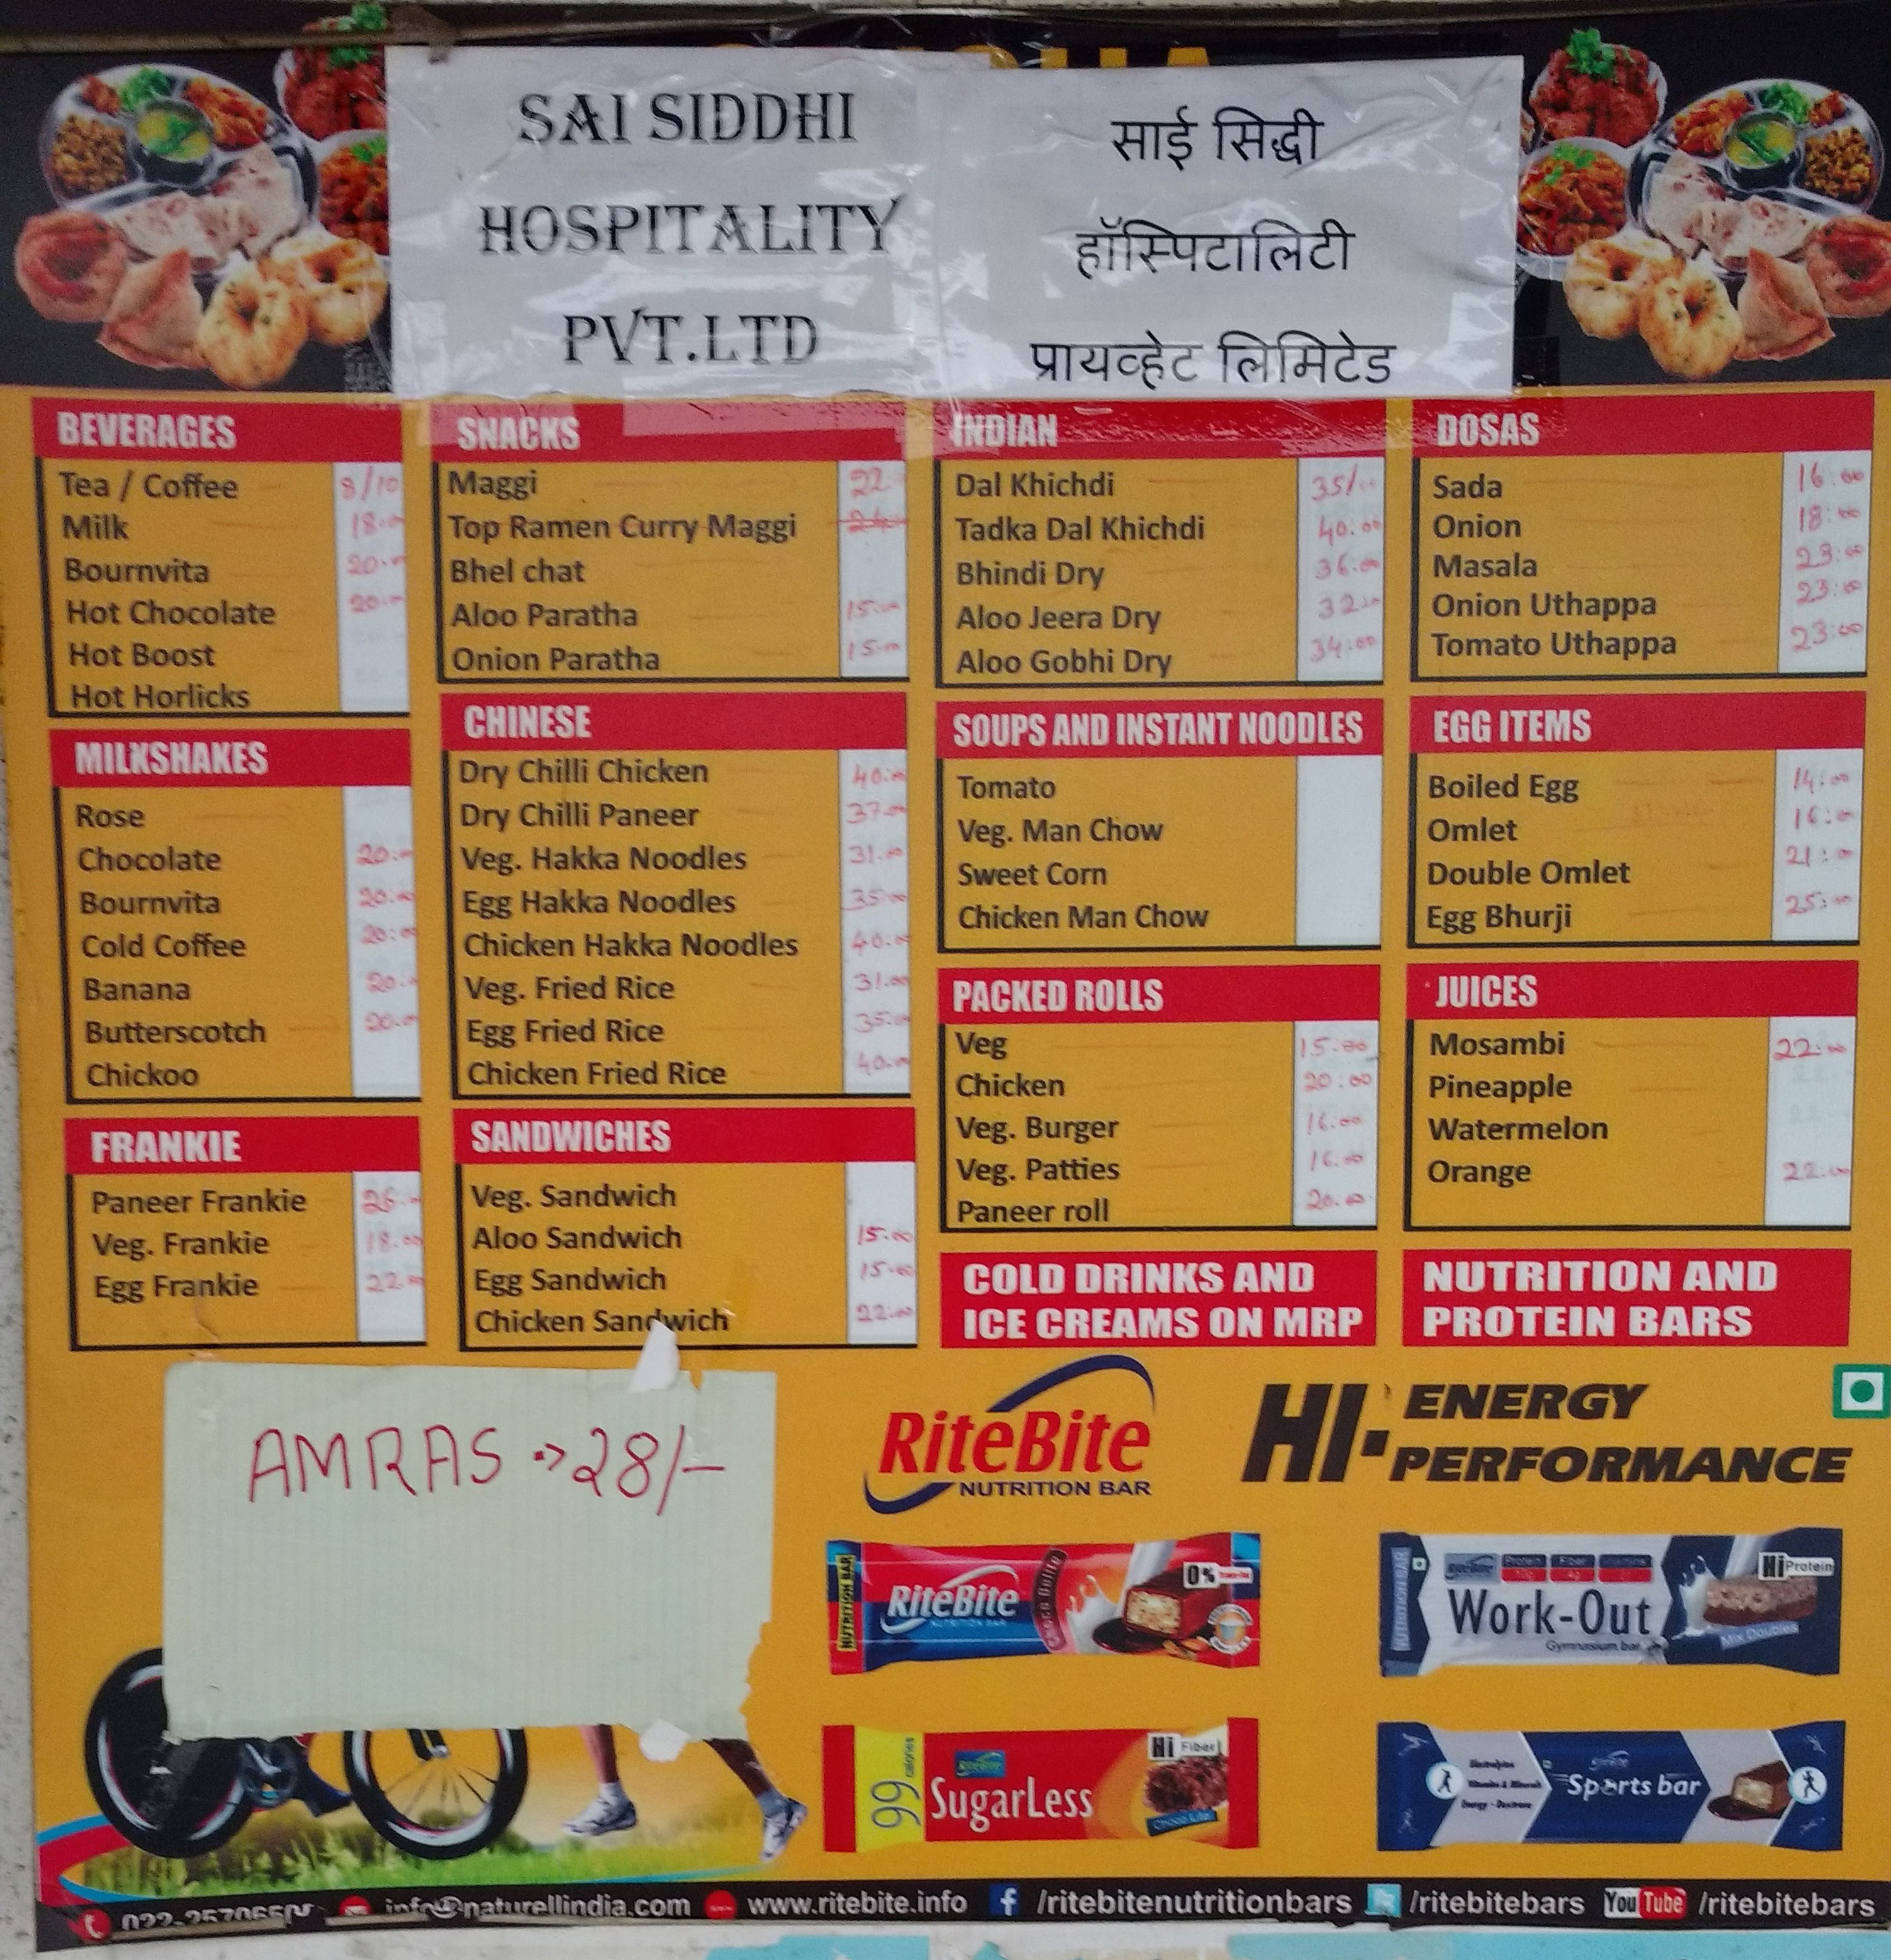 SAI SIDDHI
HOSPITALITY
PVT.LTD
साई सिद्धी
हॉस्पिटालिटी
प्रायव्हेट लिमिटेड
BEVERAGES
Tea / Coffee 8/10
Milk 18.00
Bournvita 20.00
Hot Chocolate 20.00
Hot Boost
Hot Horlicks
MILKSHAKES
Rose
Chocolate 20.00
Bournvita 20.00
Cold Coffee 20:00
Banana 20.00
Butterscotch 20.00
Chickoo
FRANKIE
Paneer Frankie 26.00
Veg. Frankie 18.00
Egg Frankie 22.00
SNACKS
Maggi 22
Top Ramen Curry Maggi 24
Bhel chat
Aloo Paratha 15.00
Onion Paratha 15.00
CHINESE
Dry Chilli Chicken 40.00
Dry Chilli Paneer 37.00
Veg. Hakka Noodles 31.00
Egg Hakka Noodles 35.00
Chicken Hakka Noodles 40.00
Veg. Fried Rice 31.00
Egg Fried Rice 35.00
Chicken Fried Rice 40.00
SANDWICHES
Veg. Sandwich
Aloo Sandwich 15.00
Egg Sandwich 15.00
Chicken Sandwich 22.00
INDIAN
Dal Khichdi 35/00
Tadka Dal Khichdi 40.00
Bhindi Dry 36:00
Aloo Jeera Dry 32.00
Aloo Gobhi Dry 34:00
SOUPS AND INSTANT NOODLES
Tomato
Veg. Man Chow
Sweet Corn
Chicken Man Chow
PACKED ROLLS
Veg 15:00
Chicken 20:00
Veg. Burger 16.00
Veg. Patties 16.00
Paneer roll 20.00
COLD DRINKS AND
ICE CREAMS ON MRP
DOSAS
Sada 16.00
Onion 18:00
Masala 23:00
Onion Uthappa 23:00
Tomato Uthappa 23:00
EGG ITEMS
Boiled Egg 14:00
Omlet 16:00
Double Omlet 21:00
Egg Bhurji 25:00
JUICES
Mosambi 22.00
Pineapple
Watermelon
Orange 22.00
NUTRITION AND
PROTEIN BARS
AMRAS → 28/-
RiteBite
NUTRITION BAR
HI- ENERGY
PERFORMANCE
NUTRITION BAR
RiteBite
NUTRITION BAR
0%
NUTRITION BAR
Protein Fiber
Work-Out
Gymnasium bar
Hi Protein
Mix Doubles
99 calories
RiteBite
SugarLess
Hi Fiber
Choco Lite
Sports bar
info@naturellindia.com www.ritebite.info /ritebitenutritionbars /ritebitebars You Tube /ritebitebars